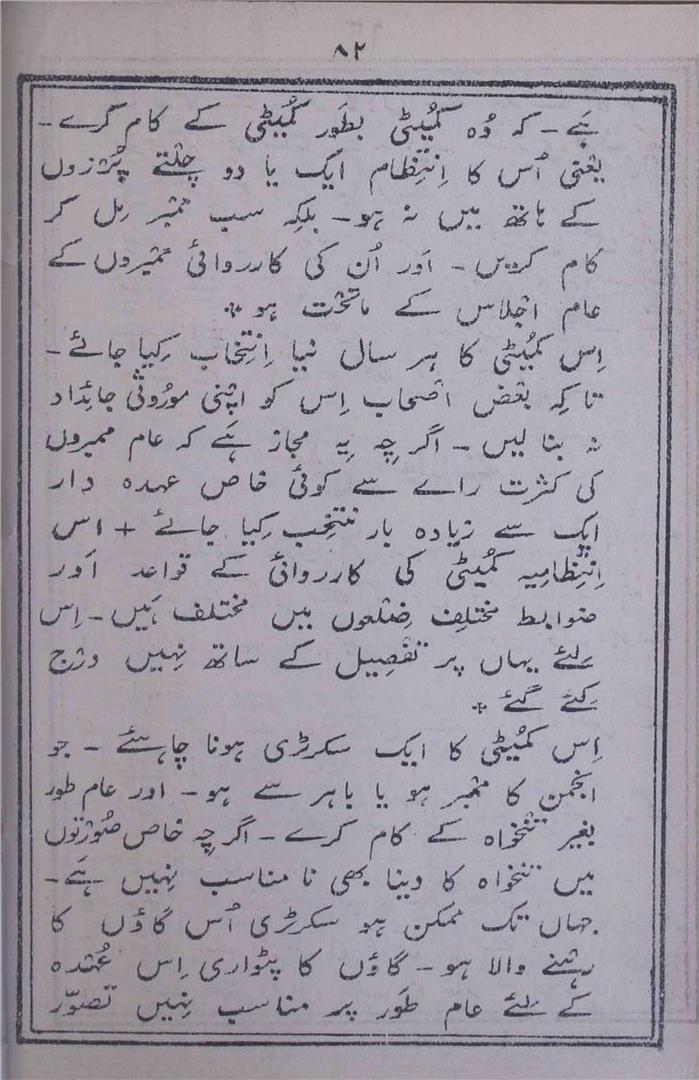 ۸۲
ہَے - کہ وُہ کمُیٹی بطَور کمُیٹی کے کام کرے -
یعْنی اُس کا اِنتِظام ایک یا دو چلْتے پُرْزوں
کے ہاتھ میں نہ ہو - بلکِہ سب ممْبر مِل کر
کام کریں - اَور اُن کی کارروائی ممْبروں کے
عام اجْلاس کے ماتحْت ہو *
اِس کمُیٹی کا ہر سال نیا اِنتِخاب کِیا جائے -
تاکِہ بعْض اصْحاب اِس کو اپْنی مورُوثی جائداد
نہ بنا لیں - اگرچِہ یِہ مجاز ہَے کہ عام ممبروں
کی کثرت راے سے کوئی خاص عہدہ دار
ایک سے زیادہ بار منتخِب کِیا جائے + اس
اِنتِظامِیہ کمُیٹی کی کارروائی کے قواعد اَور
ضوابط مختلِف ضِلعوں میں مختلف ہَیں - اِس
لِئے یہاں پر تفْصِیل کے ساتھ نِہیں درْج
کِئے گئے *
اِس کمُیٹی کا ایک سکرٹری ہونا چاہئے - جو
انجْمن کا ممْبر ہو یا باہر سے ہو - اور عام طور
بغیر تنْخواہ کے کام کرے - اگرچِہ خاص صُورْتوں
میں تنْخواہ کا دینا بھی نا مناسب نِہیں ہَے -
جہاں تک ممکن ہو سکرٹری اُس گاؤں کا
رہْنے والا ہو - گاؤں کا پٹواری اِس عُہْدہ
کے لِئے عام طَور پر مناسب نِہیں تصوّر